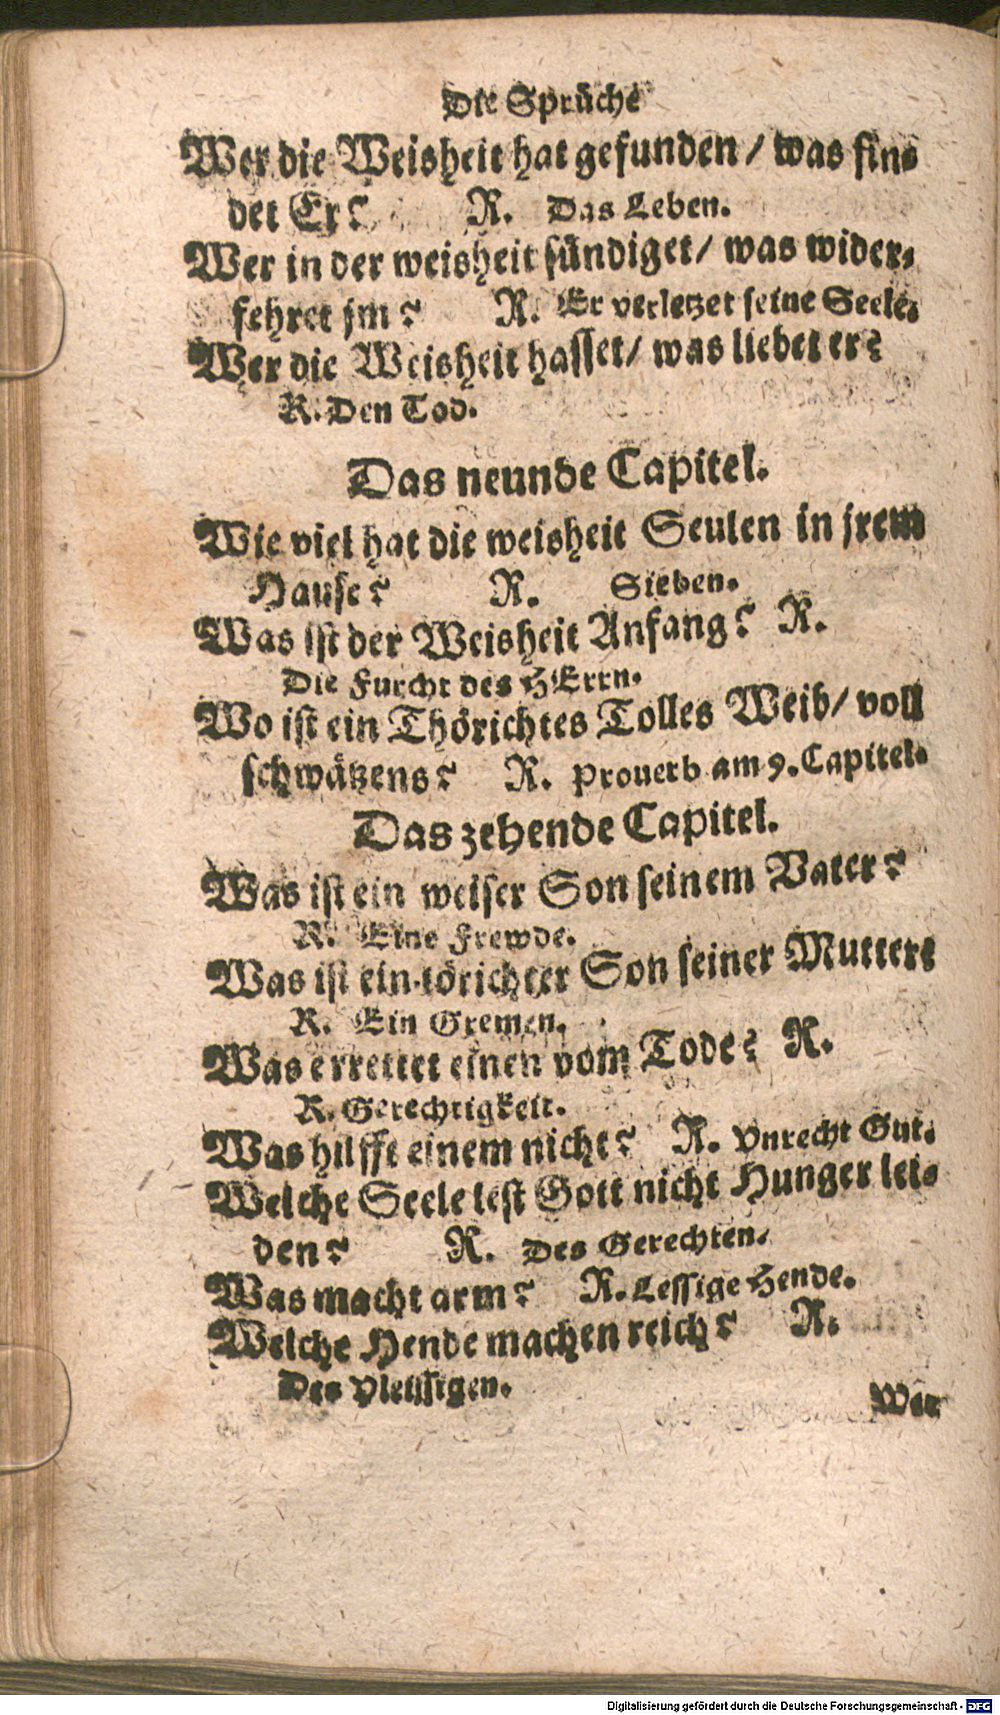 Die Sprüche
Wer die Weisheit hat gefunden / was fin-
det Er? R. Das Leben.
Wer in der weisheit sündiget / was wider-
fehret jm? R. Er verletzet seine Seele.
Wer die Weisheit hasset / was liebet er?
R. Den Tod.
Das neunde Capitel.
Wie viel hat die weisheit Seulen in jrem
Hause? R. Sieben.
Was ist der Weisheit Anfang? R.
Die Furcht des HErrn.
Wo ist ein Thörichtes Tolles Weib / voll
schwätzens? R. Prouerb am 9. Capitel.
Das zehende Capitel.
Was ist ein weiser Son seinem Vater?
R. Eine Frewde.
Was ist ein törichter Son seiner Mutter?
R. Ein Gremen.
Was errettet einen vom Tode? R.
R. Gerechtigkeit.
Was hilfft einem nicht? R. Vnrecht Gut.
Welche Seele lest Gott nicht Hunger lei-
den? R. Des Gerechten.
Was macht arm? R. Lessige Hende.
Welche Hende machen reich? R.
Des Vleissigen.
Wer
Digitalisierung gefördert durch die Deutsche Forschungsgemeinschaft - DFG